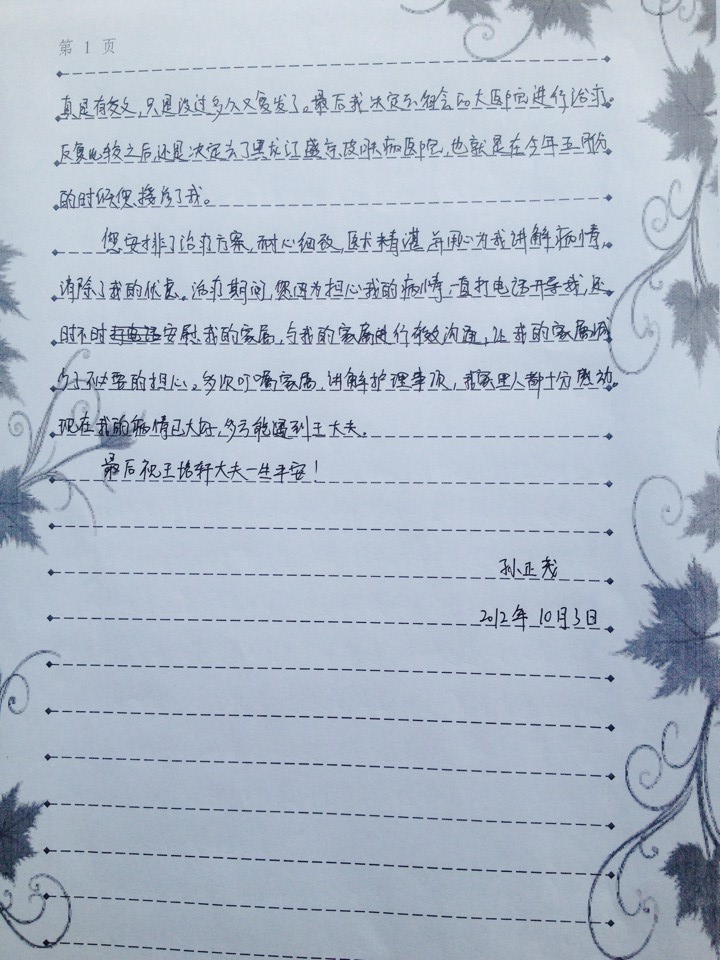 第 1 页
真是有效文，只是没过多久又复发了。最后我决定去组会的大医院进行治疗。
反复比较之后，还是决定去了黑龙江盛京皮肤病医院，也就是在今年五月份
的时候您接诊了我。
您安排了治疗方案，耐心细致，医术精湛，并用心为我讲解病情，
消除了我的忧虑。治疗期间，您因为担心我的病情一直打电话开导我，还
时不时安慰我的家属，与我的家属进行有效沟通，让我的家属减
少了不必要的担心。多次叮嘱家属，讲解护理事项，我家里人都十分感动。
现在我的病情已大好，多亏能遇到王大夫。
最后祝王培轩大夫一生平安！
孙正茂
2012年10月3日